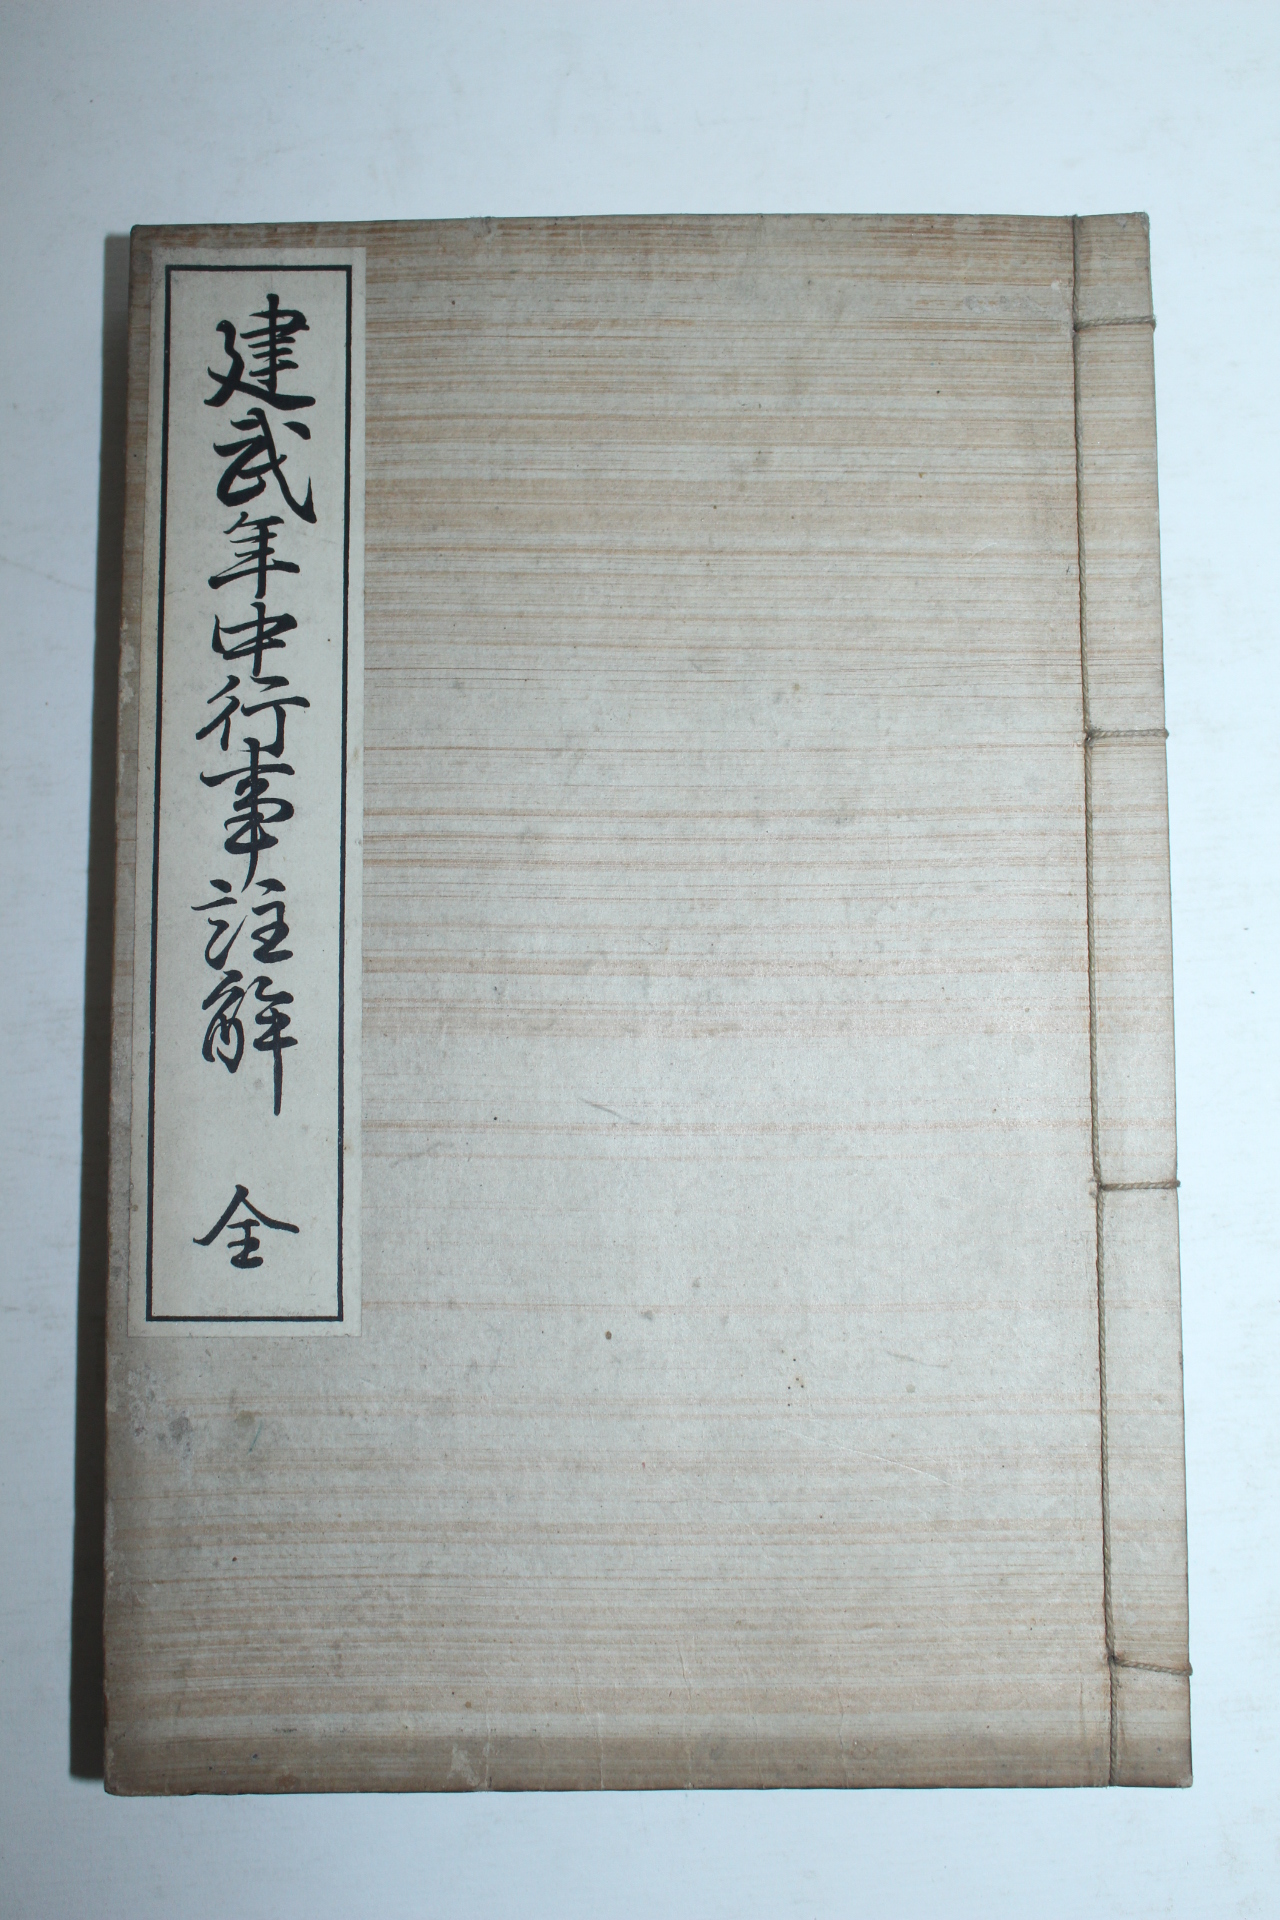 建武年中行事註解 全